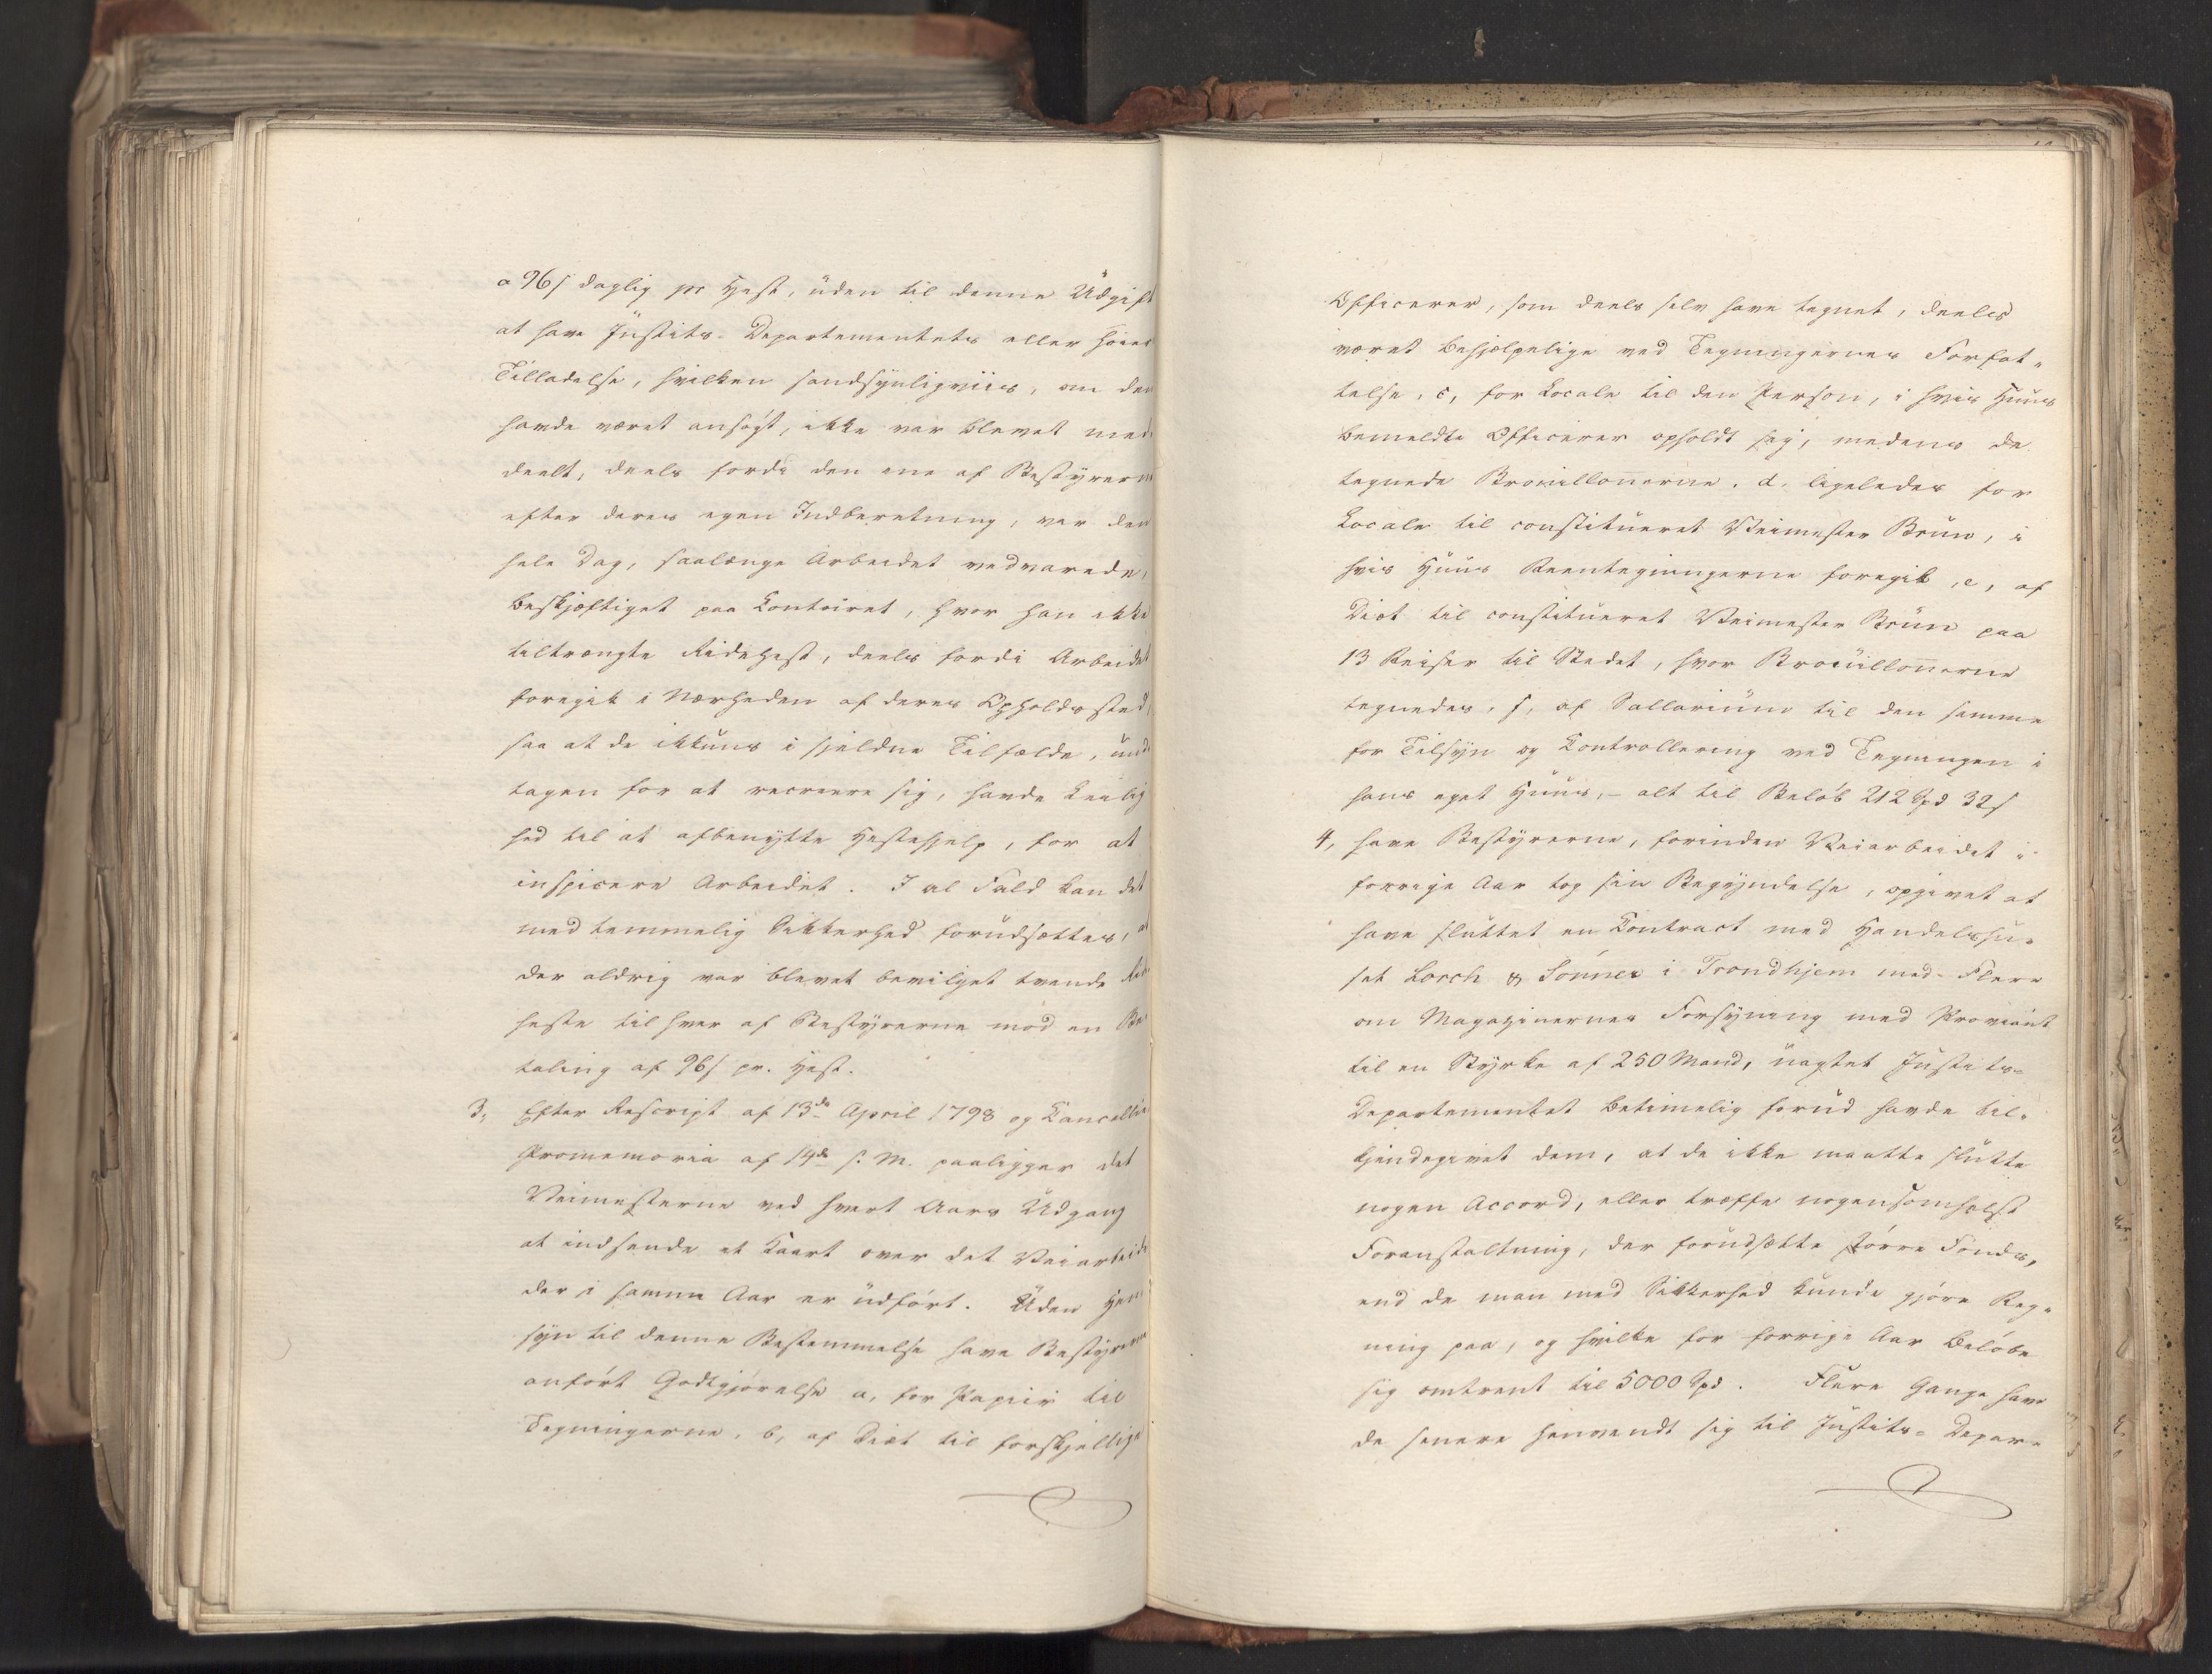 a 96 s daglig pr Hest, uden til denne Udgift
at have Justits-Departementets eller høiere
Tilladelse, hvilken sandsynligviis, om den
havde været ansøgt, ikke var blevet med-
deelt, deels fordi den ene af Bestyrerne
efter deres egen Indberetning, var den
hele Dag, saalænge Arbeidet vedvarede,
beskjæftiget paa Contoiret, hvor han ikke
tiltrængte Ridehest, deels fordi Arbeidet
foregik i Nærheden af deres Opholdssted,
saa at de ikkuns i sjeldne Tilfælde, und-
tagen for at recreere sig, havde Leilig-
hed til at afbenytte Hestehjelp, for at
inspicere Arbeidet. I al Fald kan det
med temmelig Sikkerhed forudsættes, at
der aldrig var blevet bevilget tvende Ride-
heste til hver af Bestyrerne mod en Be-
taling af 96 s pr. Hest.
3, Efter Rescript af 13de April 1798 og Cancellie
Promemoria af 14de s. M. paaligger det
Veimesterne ved hvert Aars Udgang
at indsende et Kaart over det Veiarbeide
der i samme Aar er udført. Uden Hen-
syn til denne Bestemmelse have Bestyrerne
anført Godtgjørelse a, for Papiir til
Tegningerne, b, af Diæt til forskjellige
Officerer, som deels selv have tegnet, deels
været behjælpelige ved Tegningernes Forfat-
telse, c, for Locale til den Person, i hvis Huus
bemeldte Officerer opholdt sig, medens de
tegnede Brouillonerne. d. ligeledes for
Locale til constitueret Veimester Brun, i
hvis Huus Reentegningerne foregik, e, af
Diæt til constitueret Veimester Brun paa
13 Reiser til Stedet, hvor Brouillonerne
tegnedes, f, af Sallarium til den samme
for Tilsyn og Controllering ved Tegningen i
hans eget Huus, - alt til Beløb 212 Spd 32 s
4, have Bestyrerne, forinden Veiarbeidet i
forrige Aar tog sin Begyndelse, opgivet at
have sluttet en Contract med Handelshu-
set Lorch & Sønner i Trondhjem med Flere
om Magazinernes Forsyning med Proviant
til en Styrke af 250 Mand, uagtet Justits-
Departementet betimelig forud havde til-
kjendegivet dem, at de ikke maatte slutte
nogen Accord, eller træffe nogensomhelst
Foranstaltning, der forudsætte større Fonds,
end de man med Sikkerhed kunde gjøre Reg-
ning paa, og hvilke for forrige Aar beløbe
sig omtrent til 5000 Spd. Flere Gange have
de senere henvendt sig til Justits-Depar-